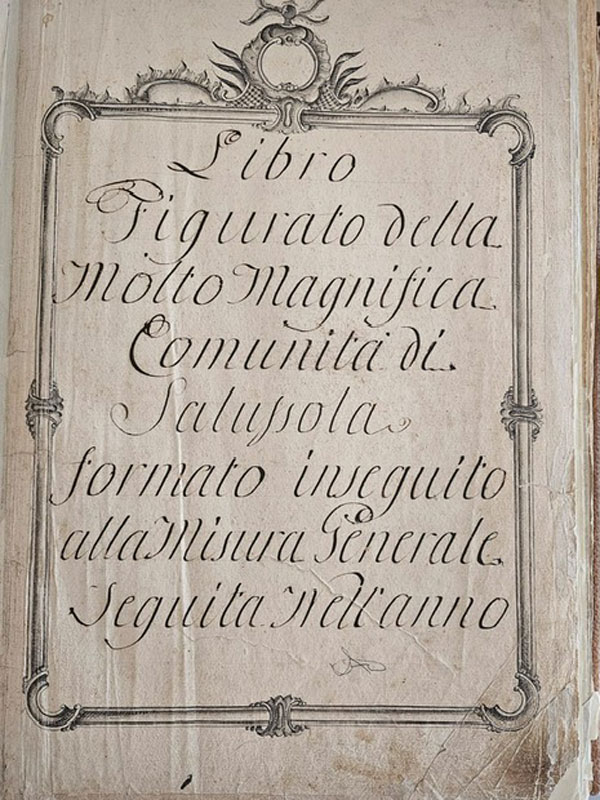 Libro
Figurato della
Molto Magnifica
Comunità di
Salussola
formato inseguito
alla Misura Generale
Seguita Nell'anno